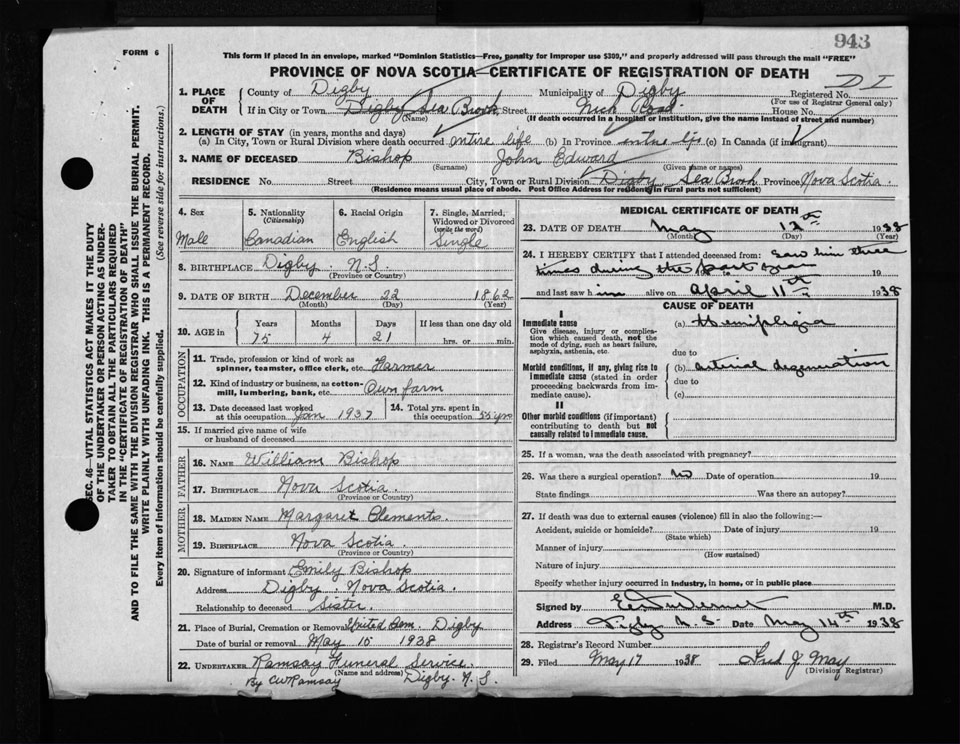 943
FORM 6
This form if placed in an envelope, marked "Dominion Statistics—Free, penalty for improper use $300," and properly addressed will pass through the mail "FREE"
PROVINCE OF NOVA SCOTIA—CERTIFICATE OF REGISTRATION OF DEATH
1. PLACE OF DEATH
County of Digby Municipality of Digby Registered No.
(For use of Registrar General only)
If in City or Town Digby Sea Brook Street House No.
(Name) (If death occurred in a hospital or institution, give the name instead of street and number)
2. LENGTH OF STAY (in years, months and days)
(a) In City, Town or Rural Division where death occurred entire life (b) In Province entire life (c) In Canada (if immigrant)
3. NAME OF DECEASED Bishop John Edward
(Surname) (Given name or names)
RESIDENCE No. Street City, Town or Rural Division Digby Sea Brook Province Nova Scotia
(Residence means usual place of abode. Post Office Address for residents in rural parts not sufficient)
4. Sex Male
5. Nationality (Citizenship) Canadian
6. Racial Origin English
7. Single, Married, Widowed or Divorced (write the word) Single
8. BIRTHPLACE Digby N.S.
(Province or Country)
9. DATE OF BIRTH December 22 1862
(Month) (Day) (Year)
10. AGE in Years 75 Months 4 Days 21 If less than one day old hrs. or min.
OCCUPATION
11. Trade, profession or kind of work as spinner, teamster, office clerk, etc. Farmer
12. Kind of industry or business, as cotton-mill, lumbering, bank, etc. Own farm
13. Date deceased last worked at this occupation Jan 1937
14. Total yrs. spent in this occupation 55 yrs
15. If married give name of wife or husband of deceased
FATHER
16. NAME William Bishop
17. BIRTHPLACE Nova Scotia.
MOTHER
18. MAIDEN NAME Margaret Clements.
19. BIRTHPLACE Nova Scotia.
(Province or Country)
20. Signature of informant Emily Bishop
Address Digby. Nova Scotia.
Relationship to deceased Sister.
21. Place of Burial, Cremation or Removal United Cem. Digby
Date of burial or removal May 15 1938
22. UNDERTAKER Ramsay Funeral Service.
(Name and address)
By CW Ramsay Digby. N.S.
MEDICAL CERTIFICATE OF DEATH
23. DATE OF DEATH May 12th 1938
(Month) (Day) (Year)
24. I HEREBY CERTIFY that I attended deceased from: Saw him three
times during the past year 19
and last saw him alive on April 11th 1938
CAUSE OF DEATH
I
Immediate cause
Give disease, injury or complication which caused death, not the mode of dying, such as heart failure, asphyxia, asthenia, etc.
(a) Hemiplegia
due to
Morbid conditions, if any, giving rise to immediate cause (stated in order proceeding backwards from immediate cause).
(b) arterial degeneration
due to
(c)
II
Other morbid conditions (if important) contributing to death but not causally related to immediate cause.
25. If a woman, was the death associated with pregnancy?
26. Was there a surgical operation? no Date of operation 19
State findings Was there an autopsy?
27. If death was due to external causes (violence) fill in also the following:—
Accident, suicide or homicide? Date of injury 19
(State which)
Manner of injury
(How sustained)
Nature of injury
Specify whether injury occurred in industry, in home, or in public place
Signed by M.D.
Address Digby N.S. Date May 14th 1938
28. Registrar's Record Number
29. Filed May 17 1938 Fred J. May
(Division Registrar)
SEC. 46—VITAL STATISTICS ACT MAKES IT THE DUTY
OF THE UNDERTAKER OR PERSON ACTING AS UNDER-
TAKER TO OBTAIN ALL THE PARTICULARS REQUIRED
IN THE "CERTIFICATE OF REGISTRATION OF DEATH"
AND TO FILE THE SAME WITH THE DIVISION REGISTRAR WHO SHALL ISSUE THE BURIAL PERMIT.
WRITE PLAINLY WITH UNFADING INK. THIS IS A PERMANENT RECORD.
Every item of information should be carefully supplied. (See reverse side for instructions.)